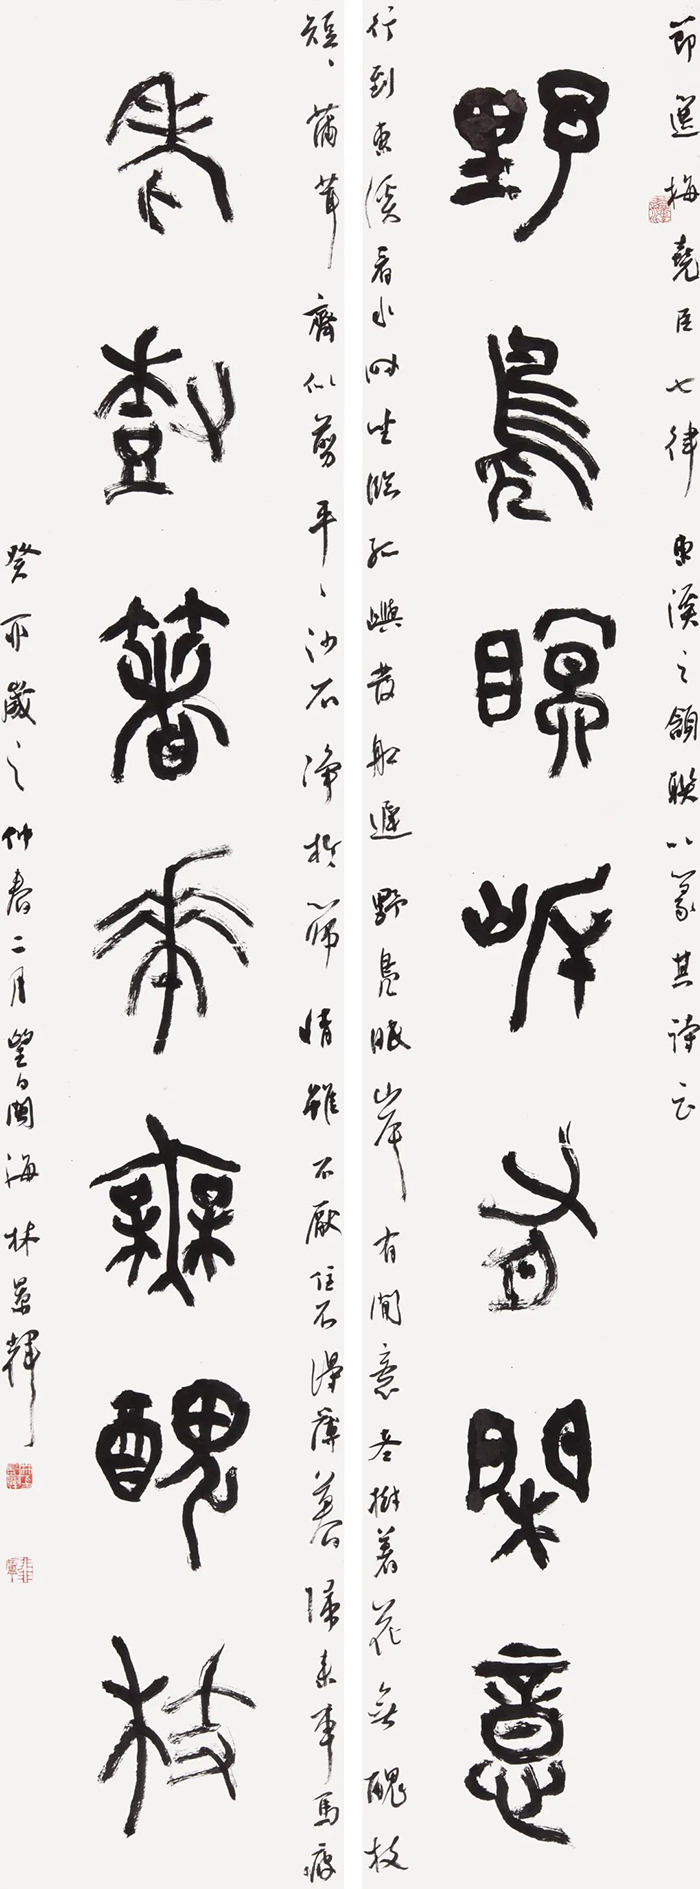 節選梅堯臣七律東溪之頷聯以篆其詩云
野鳧瞑岸有閑意
行到東溪看水時坐臨孤嶼發船遲野鳧眠岸有閒意老樹着花無醜枝
短〻蒲茸齊似剪平〻沙石淨於篩情雖不厭住不得薄暮歸來車馬疲
老樹著花無醜枝
癸卯歲之仲春二月望日閩海林景輝